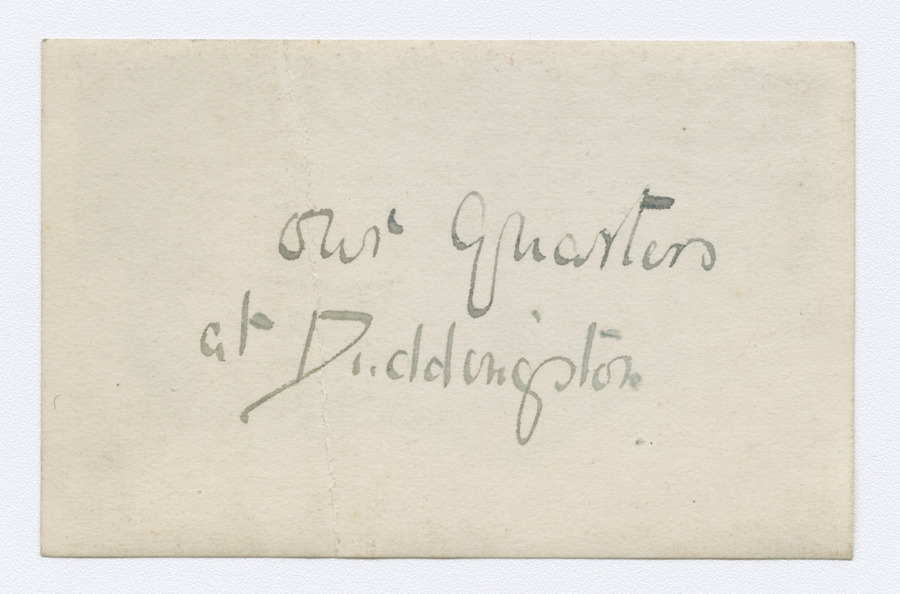 our quarters
at Duddingston